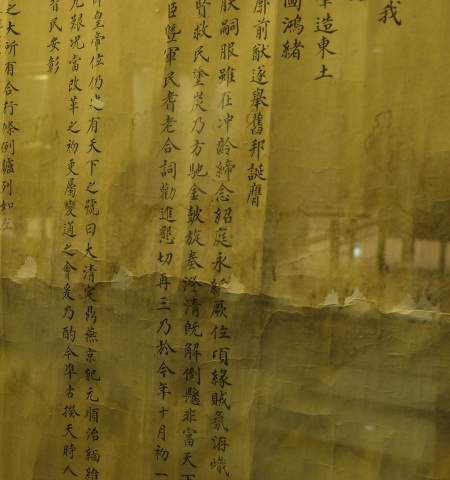 我
造東土
國鴻緒
廓前猷遂舉舊邦誕膺
朕嗣服雖在冲齡締念紹庭永綏厥位頃緣賊氛洊熾
賢救民塗炭乃方馳金鼓旋奏澄清既解倒懸非富天下
臣暨軍民耆老合詞勸進懇切再三乃於今年十月初一
皇帝位仍建有天下之號曰大清定鼎燕京紀元順治緬維
艱況當改革之初更屬變通之會爰乃酌今準古揆天時人
民安彰
之大所有合行條例臚列如左